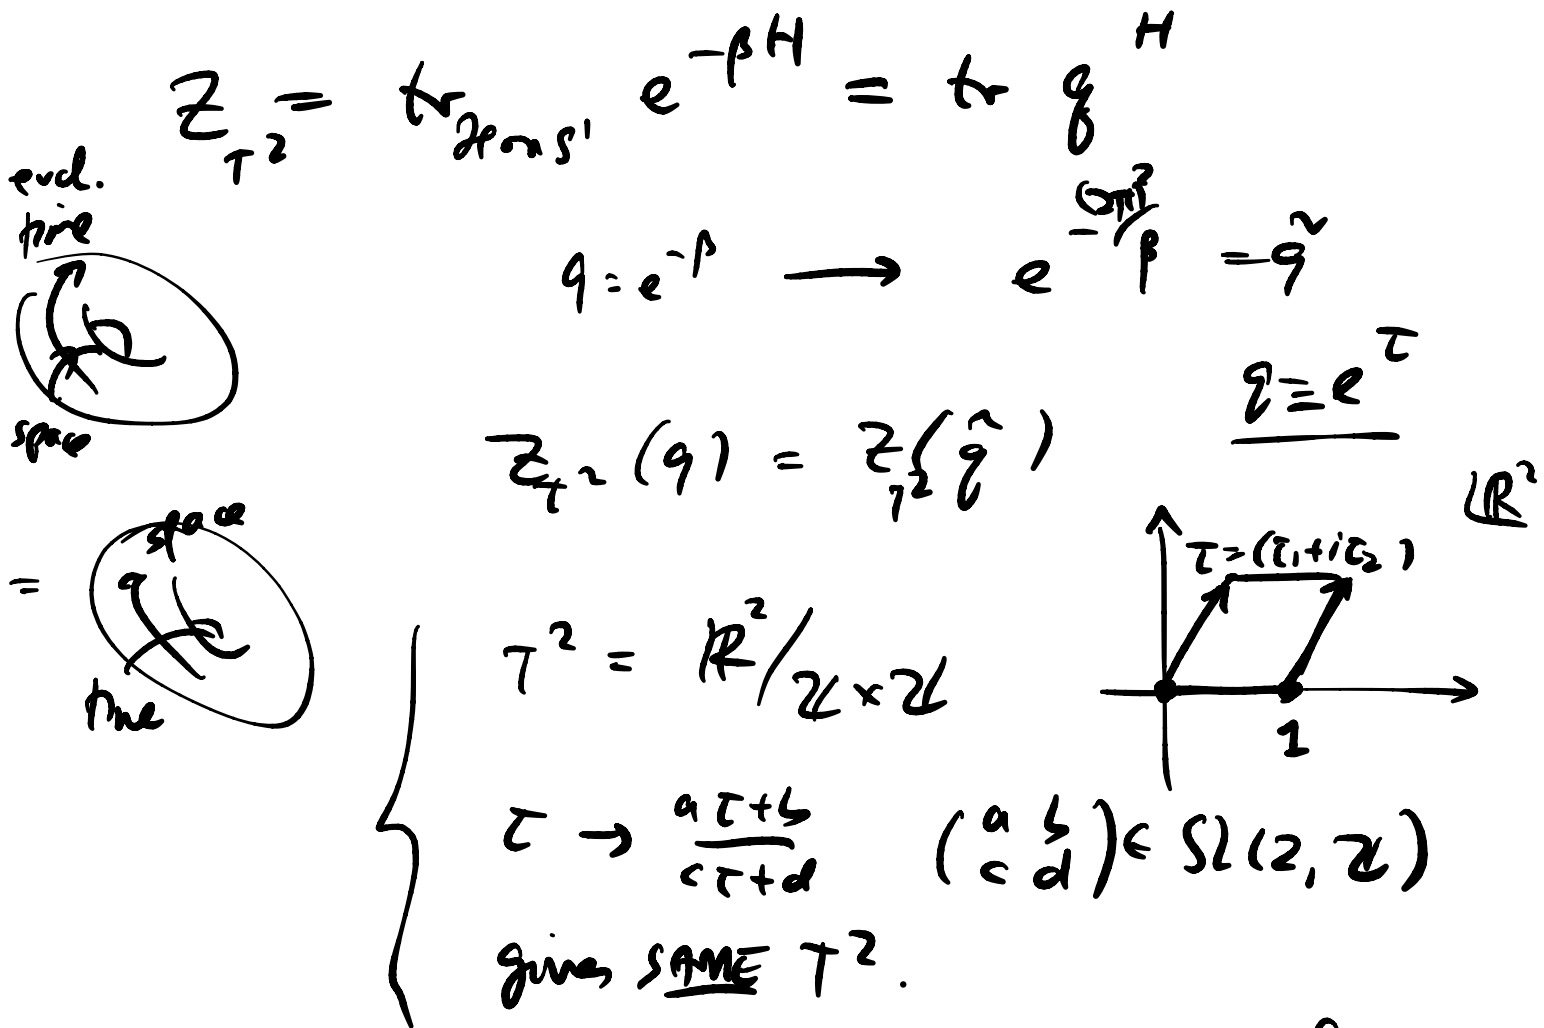 Z_{T^2} = tr_{ℋ on S^1} e^{-βH} = tr q^H
eucl.
time
space
q = e^{-β} ⟶ e^{-(2π)^2/β} = q̃
q ≡ e^τ
Z_{T^2}(q) = Z_{T^2}(q̃)
ℝ^2
τ = (τ_1 + iτ_2)
1
=
space
time
T^2 = ℝ^2/ℤ×ℤ
τ → \frac{aτ+b}{cτ+d} \begin{pmatrix} a & b \\ c & d \end{pmatrix} ∈ SL(2,ℤ)
gives SAME T^2.